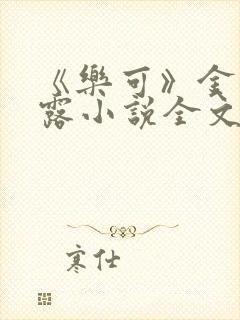 《樂可》全
露小說全文
寒仕